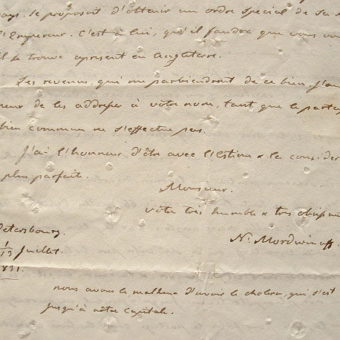 pays, se proposoit d'obtenir un ordre spécial de sa
l'Empereur. C'est à lui, qu'il faudra que vous
il se trouve apresent en Angleterre.
Les revenus, qui me parviendront de ce bien, j'au
neur de les addresser à votre nom, tant que le partage
bien commun ne s'effectue pas.
J'ai l'honneur d'être avec l'estime & la consider
plus parfait.
Monsieur.
votre très humble & très obeissan
N. Mordwinoff
Petersbourg
1/13 Juillet.
1831.
nous avons le malheur d'avoir le cholera, qui s'est
jusqu'à nôtre capitale.